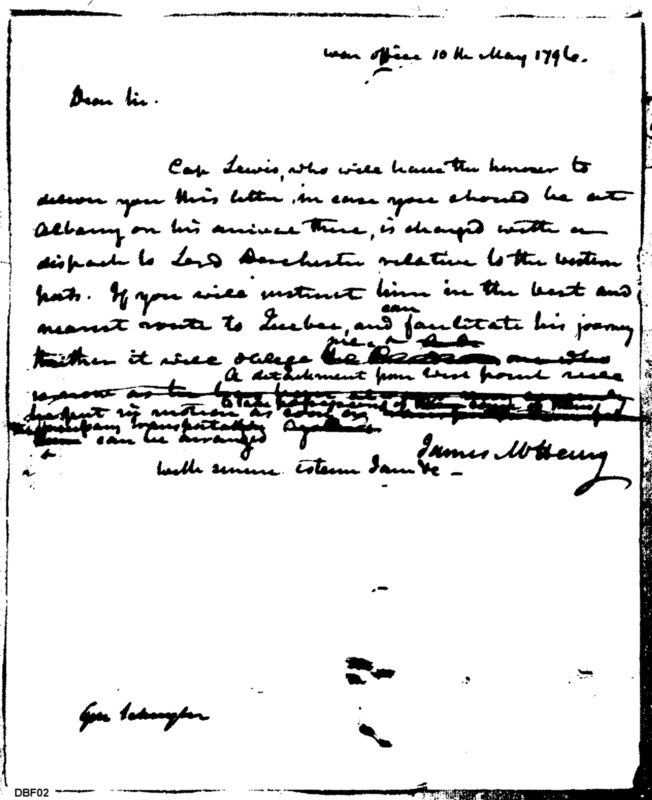 War office 10th May 1796.
Dear Sir.
Cap Lewis, who will have the honour to
deliver you this letter in case you should be at
Albany on his arrival there, is charged with a
dispach to Lord Dorchester relative to the western
posts. If you will instruct him in the best and
nearest route to Quebec, and can facilitate his journey
thither it will oblige me
A detachment from West point will
be put in motion as soon as
transportation
can be arranged
James McHenry
with sincere esteem I am &c -
Gen Schuyler
DBF02